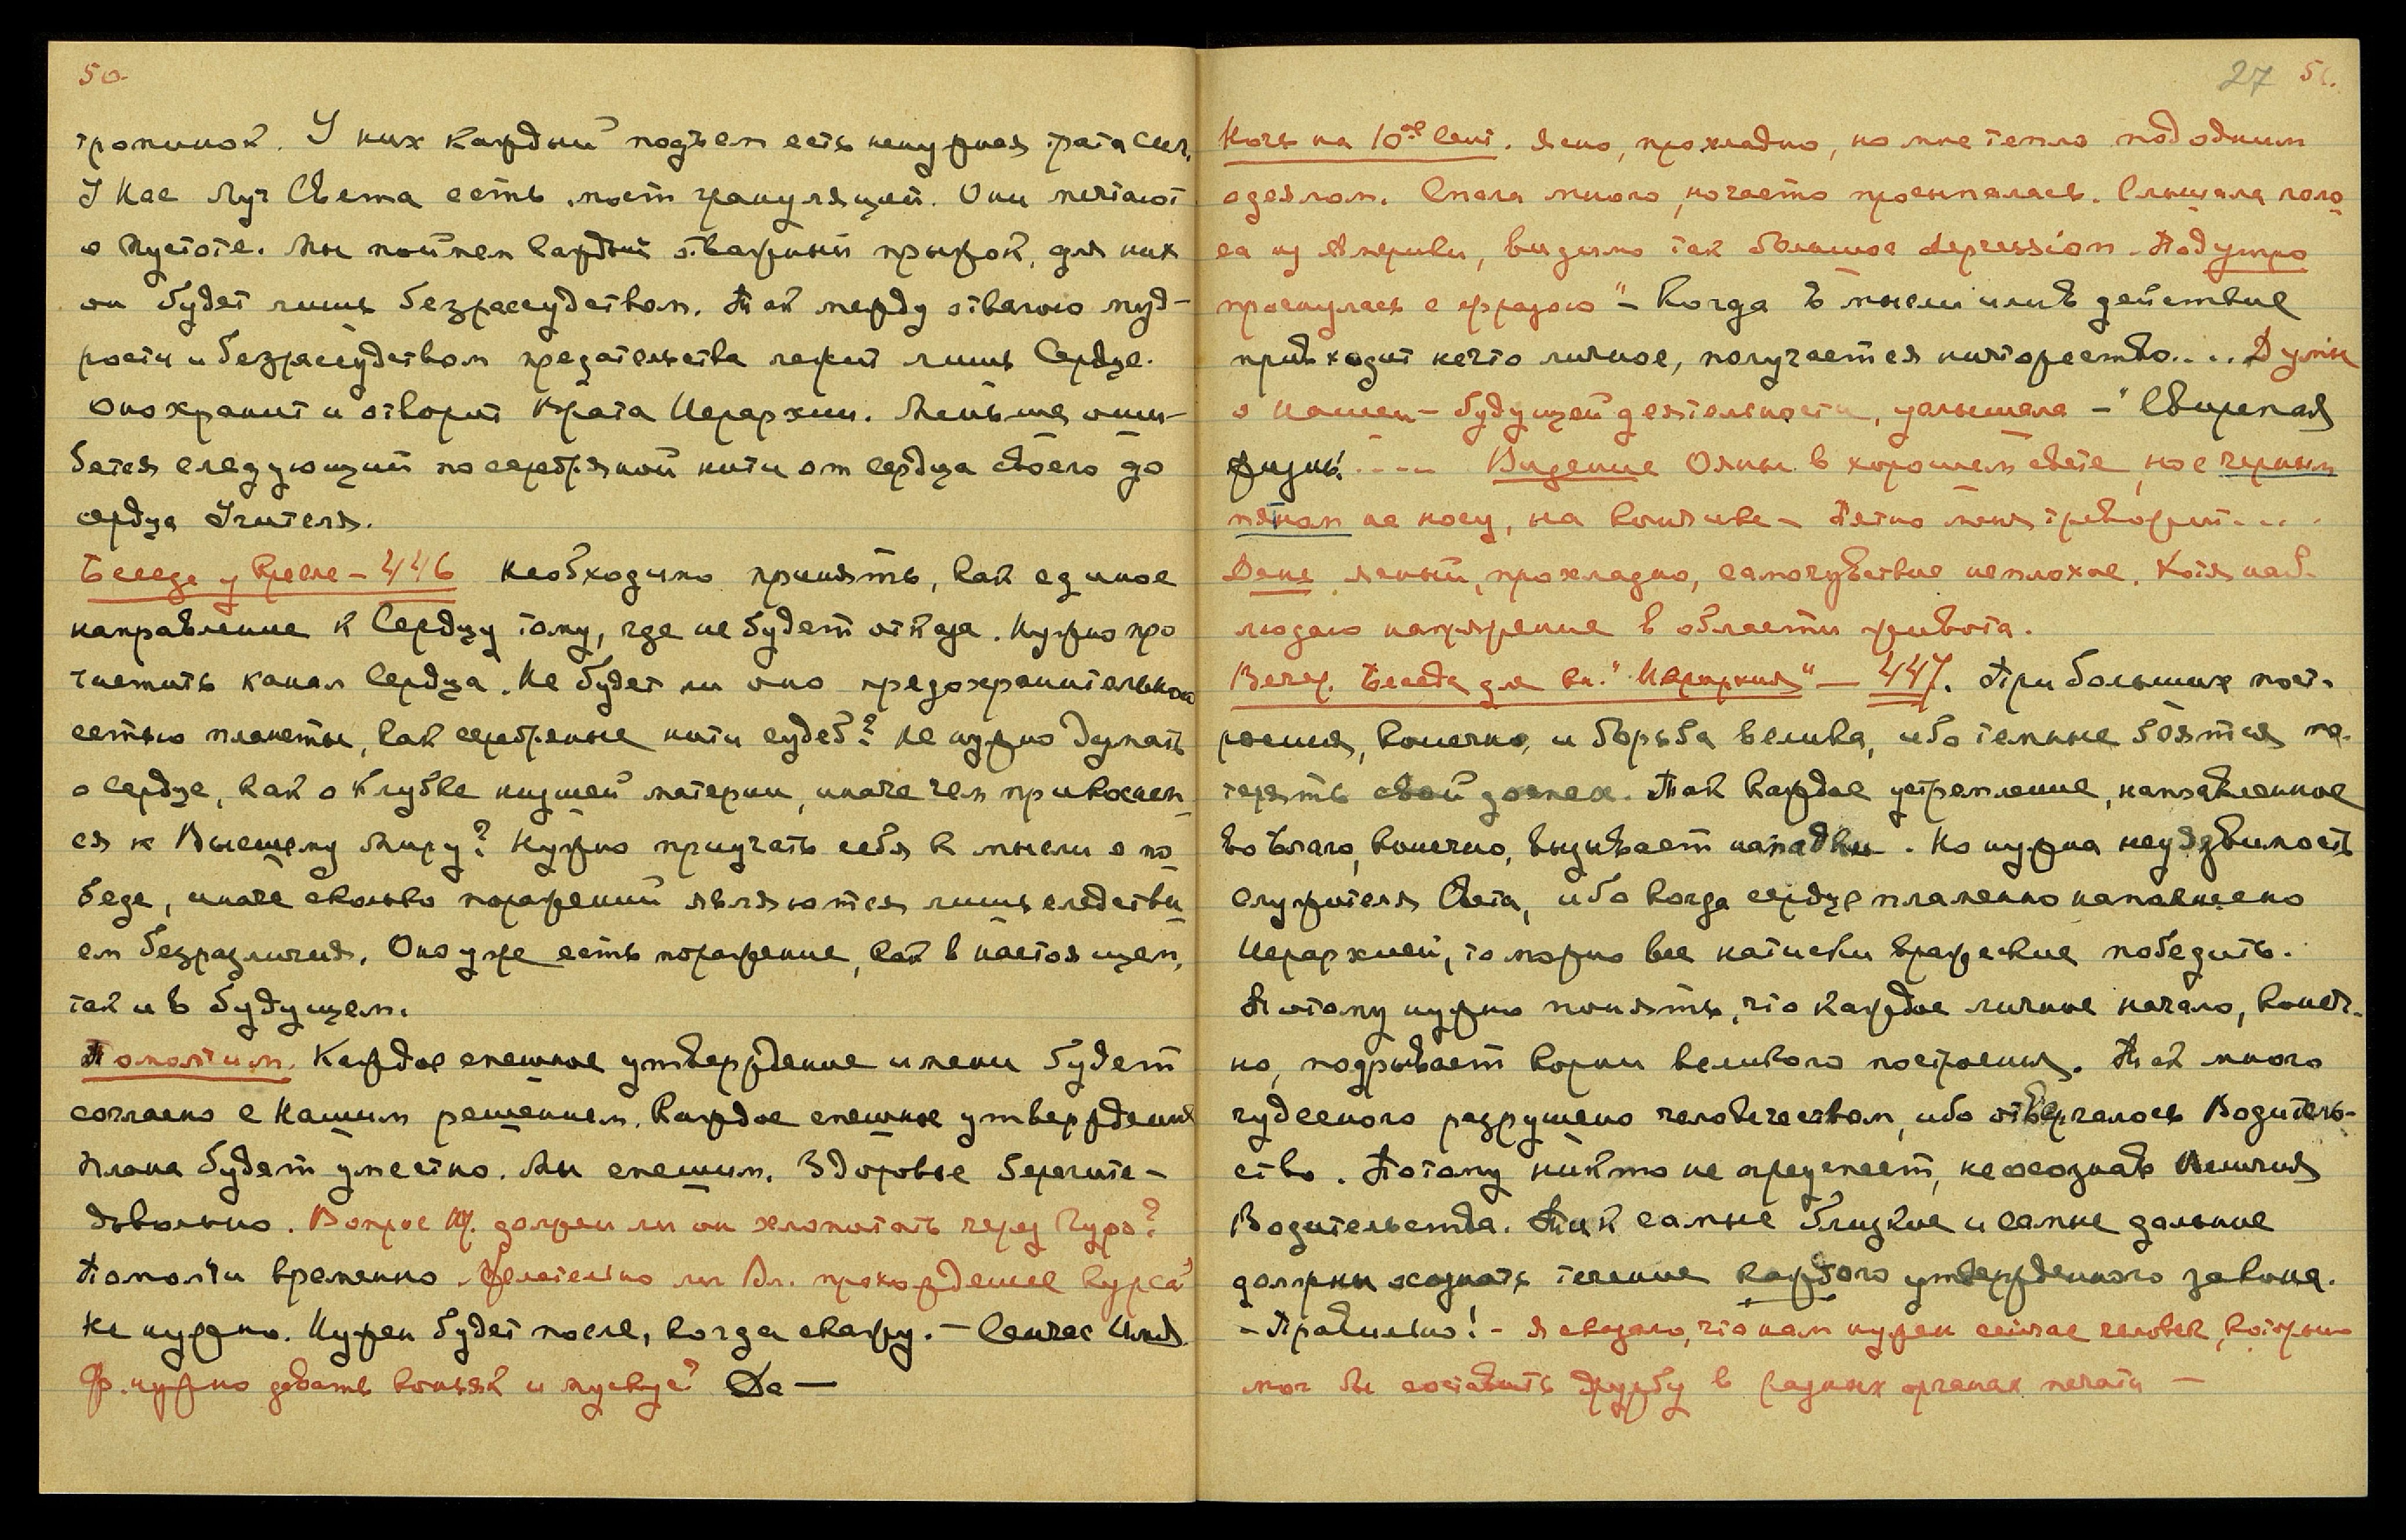 50.
тропинок. У них каждый подъем есть ненужная трата сил,
У Нас Луч Света есть мост грануляций. Они мечтают
о Пустоте. Мы поймем каждый отважный прыжок, для них
он будет лишь безрассудством. Так между отвагою муд-
рости и безрассудством предательства лежит лишь Сердце.
Оно хранит и отворит Врата Иерархии. Меньше оши-
бется следующий по серебряной нити от сердца своего до
сердца Учителя.
Беседа у Кресле – 446 Необходимо принять, как единое
направление к Сердцу тому, где не будет отказа. Нужно про
чистить канал Сердца. Не будет ли оно предохранительною
сетью планеты, как серебряные нити судеб? Не нужно думать
о сердце, как о клубке низшей материи, иначе чем прикоснем
ся к Высшему Миру? Нужно приучать себя к мысли о по
беде, иначе сколько поражений являются лишь следстви
ем безразличия. Оно уже есть поражение, как в настоящем,
так и в будущем.
Помолчим. Каждое спешное утверждение имени будет
согласно с Нашим решением. Каждое спешное утверждения
плана будет уместно. Мы спешим. Здоровье берегите –
довольно. Вопрос должен ли он хлопотать через Гуро?
Помолчи временно. Желательно ли Вл. прохождение курса?
Не нужно. Нужен будет после, когда скажу. – Сейчас
Ф. нужно давать коньяк и мускус? Да –
27 51.
Ночь на 10ое Сент. Ясно, прохладно, но мне тепло под одним
одеялом. Спала много, но часто просыпалась. Слышала голо
са из Америки, видимо там большое depression. Под утро
проснулась с фразою "– Когда в мысли или в действие
привходит нечто личное, получается ничтожество.... Думы
о нашей – будущей деятельности, услышала – "Свирепая
жизнь!.... Видение Ояны в хорошем свете, но с черным
пятном на носу, на кончике – Пятно меня тревожит....
День ясный, прохладно, самочувствие неплохое. Хотя наб-
людаю напряжение в области живота.
Вечер. Беседа для кн. "Иерархия" – 447. При больших пост-
роения, конечно, и борьба велика, ибо темные боятся по-
терять свой доспех. Так каждое устремление, направленное
во Благо, конечно, вызывает нападки. Но нужна неуязвимость
служителя Света, ибо когда сердце пламенно наполнено
Иерархией, то можно все натиски вражеские победить.
Потому нужно понять, что каждое личное начало, конеч-
но, подрывает корни великого построения. Так много
чудесного разрушено человечеством, ибо отвергалось Водитель-
ство. Потому никто не преуспеет, не осознав Величия
Водительства. Так самые близкие и самые дальние
должны осознать течение каждого утвержденного закона.
– Правильно! – Я сказала, что нам нужен сейчас человек, который
мог бы составить дружбу в разных органах печати –